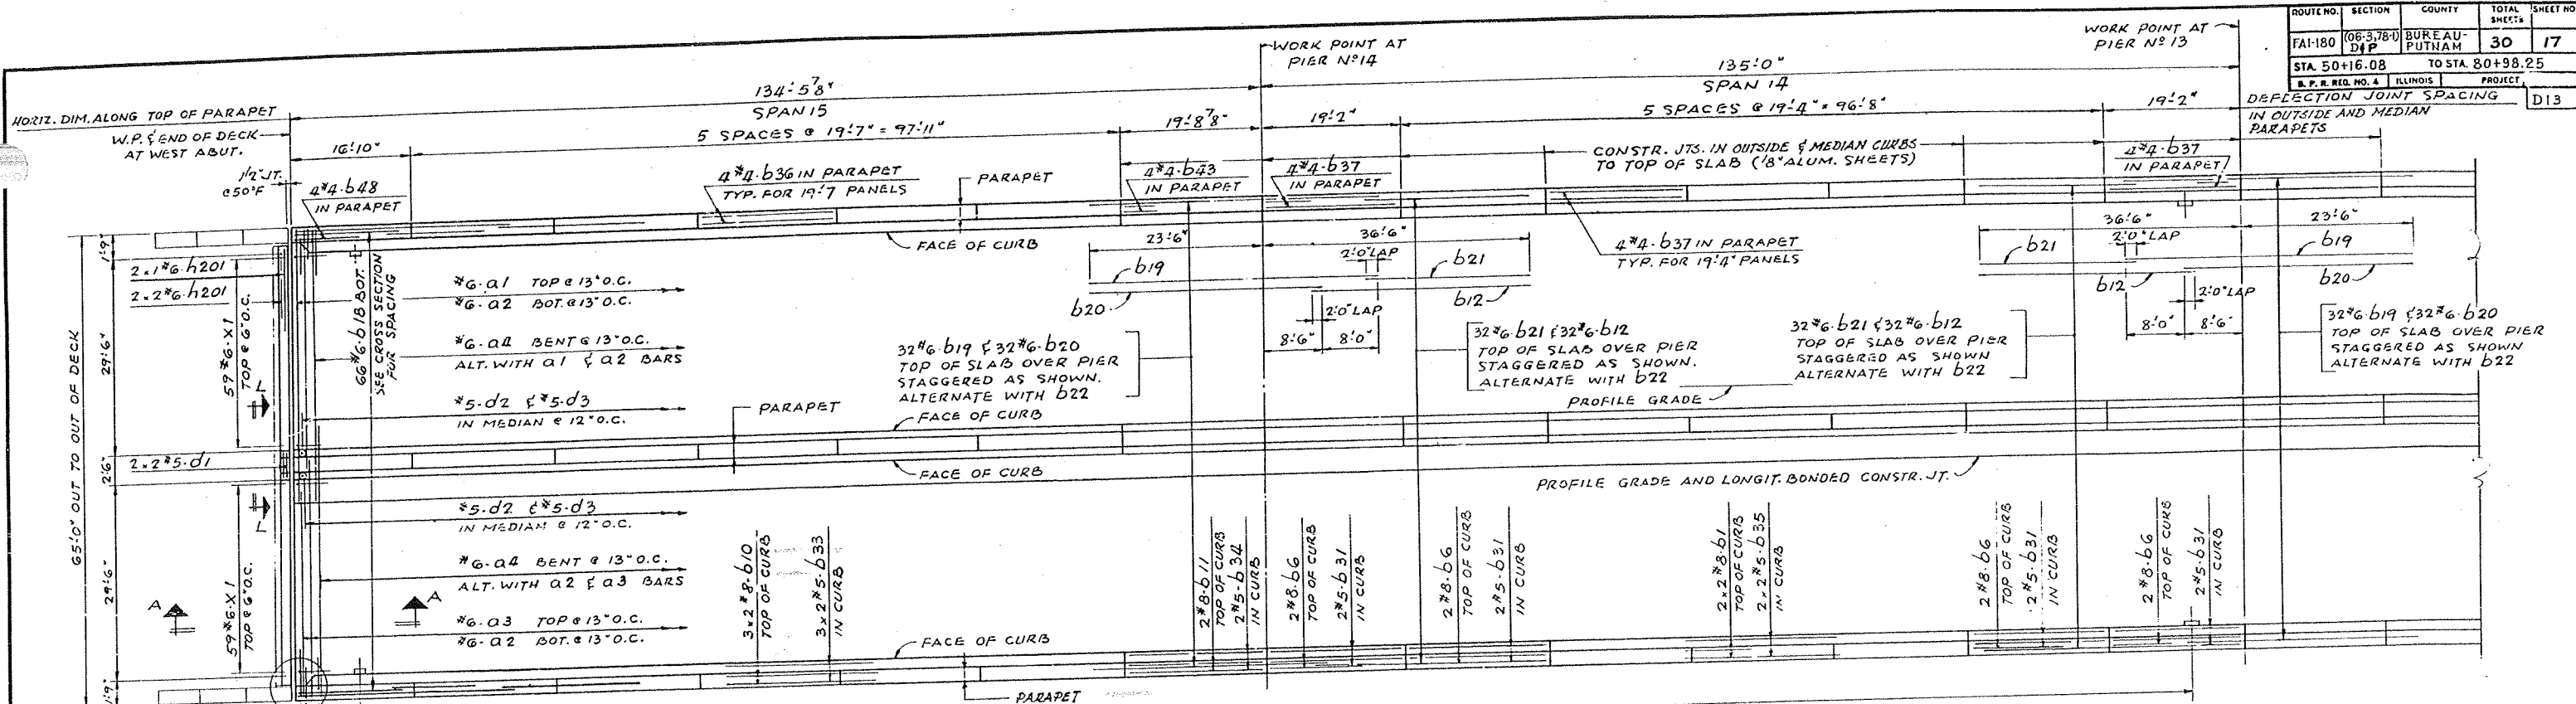 ROUTE NO. SECTION COUNTY TOTAL SHEETS SHEET NO
FAI-180 (06-3,78-1) D&P BUREAU-PUTNAM 30 17
STA. 50+16.08 TO STA. 80+98.25
B. P. R. REG. NO. 4 ILLINOIS PROJECT
D13
WORK POINT AT
PIER Nº 14
WORK POINT AT
PIER Nº 13
134'-5 7/8"
SPAN 15
135'-0"
SPAN 14
HORIZ. DIM. ALONG TOP OF PARAPET
W.P. & END OF DECK
AT WEST ABUT.
16'-10"
5 SPACES @ 19'-7" = 97'-11"
19'-8 7/8"
19'-2"
5 SPACES @ 19'-4" = 96'-8"
19'-2"
DEFLECTION JOINT SPACING
IN OUTSIDE AND MEDIAN
PARAPETS
1/2" JT.
@ 50°F
4#4-b48
IN PARAPET
4#4-b36 IN PARAPET
TYP. FOR 19'-7 PANELS
PARAPET
4#4-b43
IN PARAPET
4#4-b37
IN PARAPET
CONSTR. JTS. IN OUTSIDE & MEDIAN CURBS
TO TOP OF SLAB (1/8" ALUM. SHEETS)
4#4-b37
IN PARAPET
FACE OF CURB
4#4-b37 IN PARAPET
TYP. FOR 19'-4" PANELS
23'-6"
36'-6"
2'-0" LAP
b19
b21
b20
b12
2'-0" LAP
8'-6"
8'-0"
36'-6"
23'-6"
2'-0" LAP
b21
b19
b12
b20
2'-0" LAP
8'-0"
8'-6"
65'-0" OUT TO OUT OF DECK
1'-9"
29'-6"
2'-6"
29'-6"
1'-9"
2x1#6-h201
2x2#6-h201
59#6-X1
TOP @ 6" O.C.
L
66#6-b18 BOT.
SEE CROSS SECTION
FOR SPACING
#6-a1 TOP @ 13" O.C.
#6-a2 BOT. @ 13" O.C.
#6-a4 BENT @ 13" O.C.
ALT. WITH a1 & a2 BARS
#5-d2 & #5-d3
IN MEDIAN @ 12" O.C.
32#6-b19 & 32#6-b20
TOP OF SLAB OVER PIER
STAGGERED AS SHOWN.
ALTERNATE WITH b22
32#6-b21 & 32#6-b12
TOP OF SLAB OVER PIER
STAGGERED AS SHOWN.
ALTERNATE WITH b22
32#6-b21 & 32#6-b12
TOP OF SLAB OVER PIER
STAGGERED AS SHOWN
ALTERNATE WITH b22
32#6-b19 & 32#6-b20
TOP OF SLAB OVER PIER
STAGGERED AS SHOWN
ALTERNATE WITH b22
PARAPET
FACE OF CURB
PROFILE GRADE
2x2#5-d1
FACE OF CURB
PROFILE GRADE AND LONGIT. BONDED CONSTR. JT.
L
59#6-X1
TOP @ 6" O.C.
A
A
#5-d2 & #5-d3
IN MEDIAN @ 12" O.C.
#6-a4 BENT @ 13" O.C.
ALT. WITH a2 & a3 BARS
#6-a3 TOP @ 13" O.C.
#6-a2 BOT. @ 13" O.C.
3x2#8-b10
TOP OF CURB
3x2#5-b33
IN CURB
2#8-b11
TOP OF CURB
2#5-b34
IN CURB
2#8-b6
TOP OF CURB
2#5-b31
IN CURB
2#8-b6
TOP OF CURB
2#5-b31
IN CURB
2x2#8-b1
TOP OF CURB
2x2#5-b35
IN CURB
2#8-b6
TOP OF CURB
2#5-b31
IN CURB
2#8-b6
TOP OF CURB
2#5-b31
IN CURB
FACE OF CURB
PARAPET